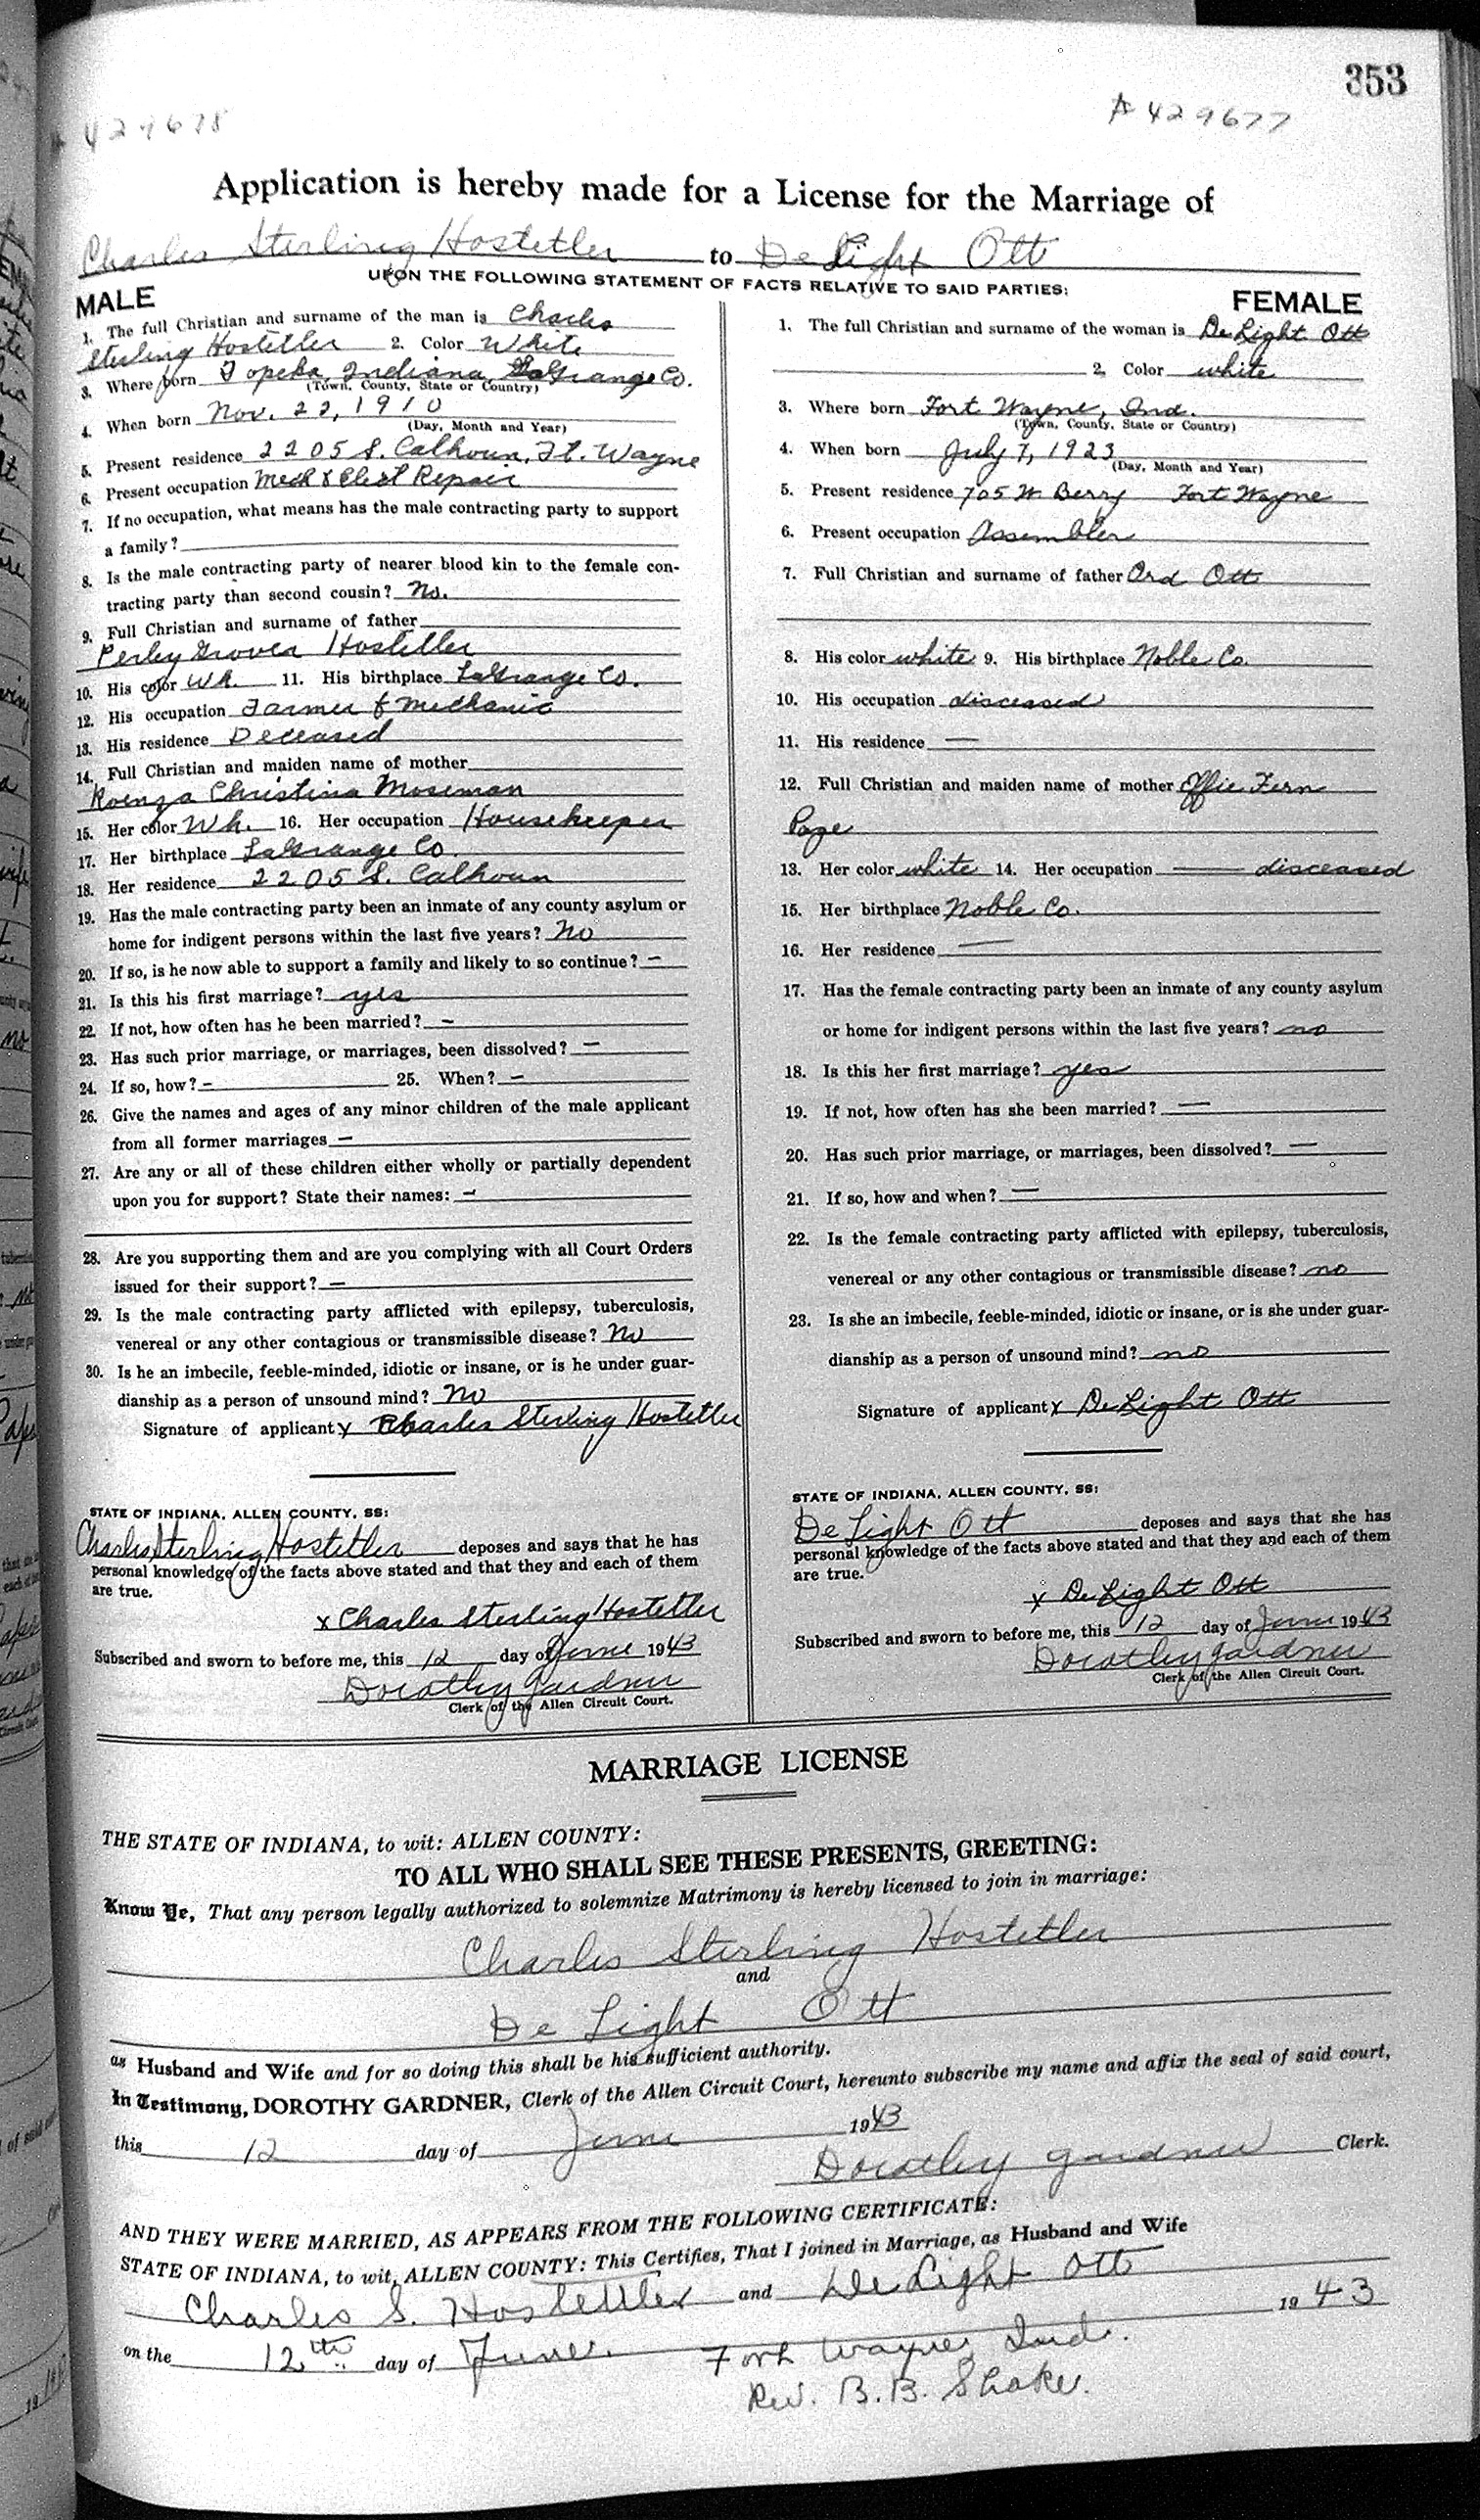 353
A 429678
A 429677
Application is hereby made for a License for the Marriage of
Charles Sterling Hostetler to De Light Ott
UPON THE FOLLOWING STATEMENT OF FACTS RELATIVE TO SAID PARTIES:
MALE
1. The full Christian and surname of the man is Charles
Sterling Hostetler 2. Color White
3. Where born Topeka, Indiana LaGrange Co.
(Town, County, State or Country)
4. When born Nov. 22, 1910
(Day, Month and Year)
5. Present residence 2205 S. Calhoun, Ft. Wayne
6. Present occupation Mech & Elect Repair
7. If no occupation, what means has the male contracting party to support
a family?
8. Is the male contracting party of nearer blood kin to the female con-
tracting party than second cousin? No.
9. Full Christian and surname of father
Perley Grover Hostetler
10. His color Wh. 11. His birthplace LaGrange Co.
12. His occupation Farmer & Mechanic
13. His residence Deceased
14. Full Christian and maiden name of mother
Roenza Christina Moseman
15. Her color Wh. 16. Her occupation Housekeeper
17. Her birthplace LaGrange Co.
18. Her residence 2205 S. Calhoun
19. Has the male contracting party been an inmate of any county asylum or
home for indigent persons within the last five years? No
20. If so, is he now able to support a family and likely to so continue? —
21. Is this his first marriage? yes
22. If not, how often has he been married? —
23. Has such prior marriage, or marriages, been dissolved? —
24. If so, how? — 25. When? —
26. Give the names and ages of any minor children of the male applicant
from all former marriages —
27. Are any or all of these children either wholly or partially dependent
upon you for support? State their names: —
28. Are you supporting them and are you complying with all Court Orders
issued for their support? —
29. Is the male contracting party afflicted with epilepsy, tuberculosis,
venereal or any other contagious or transmissible disease? No
30. Is he an imbecile, feeble-minded, idiotic or insane, or is he under guar-
dianship as a person of unsound mind? No
Signature of applicant X Charles Sterling Hostetler
STATE OF INDIANA, ALLEN COUNTY, SS:
Charles Sterling Hostetler deposes and says that he has
personal knowledge of the facts above stated and that they and each of them
are true.
x Charles Sterling Hostetler
Subscribed and sworn to before me, this 12 day of June 1943
Dorothy Gardner
Clerk of the Allen Circuit Court.
FEMALE
1. The full Christian and surname of the woman is De Light Ott
2. Color white
3. Where born Fort Wayne, Ind.
(Town, County, State or Country)
4. When born July 7, 1923
(Day, Month and Year)
5. Present residence 705 W. Berry Fort Wayne
6. Present occupation Assembler
7. Full Christian and surname of father Ord Ott
8. His color white 9. His birthplace Noble Co.
10. His occupation disceased
11. His residence —
12. Full Christian and maiden name of mother Effie Fern
Page
13. Her color white 14. Her occupation — disceased
15. Her birthplace Noble Co.
16. Her residence —
17. Has the female contracting party been an inmate of any county asylum
or home for indigent persons within the last five years? no
18. Is this her first marriage? yes
19. If not, how often has she been married? —
20. Has such prior marriage, or marriages, been dissolved? —
21. If so, how and when? —
22. Is the female contracting party afflicted with epilepsy, tuberculosis,
venereal or any other contagious or transmissible disease? no
23. Is she an imbecile, feeble-minded, idiotic or insane, or is she under guar-
dianship as a person of unsound mind? no
Signature of applicant X De Light Ott
STATE OF INDIANA, ALLEN COUNTY, SS:
De Light Ott deposes and says that she has
personal knowledge of the facts above stated and that they and each of them
are true.
x De Light Ott
Subscribed and sworn to before me, this 12 day of June 1943
Dorothy Gardner
Clerk of the Allen Circuit Court.
MARRIAGE LICENSE
THE STATE OF INDIANA, to wit: ALLEN COUNTY:
TO ALL WHO SHALL SEE THESE PRESENTS, GREETING:
Know Ye, That any person legally authorized to solemnize Matrimony is hereby licensed to join in marriage:
Charles Sterling Hostetler
and
De Light Ott
as Husband and Wife and for so doing this shall be his sufficient authority.
In Testimony, DOROTHY GARDNER, Clerk of the Allen Circuit Court, hereunto subscribe my name and affix the seal of said court,
this 12 day of June 1943
Dorothy Gardner Clerk.
AND THEY WERE MARRIED, AS APPEARS FROM THE FOLLOWING CERTIFICATE:
STATE OF INDIANA, to wit, ALLEN COUNTY: This Certifies, That I joined in Marriage, as Husband and Wife
Charles S. Hostettler and De Light Ott
on the 12th day of June. 1943
Fort Wayne, Ind.
Rev. B.B. Shake.